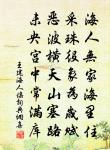 海人無家海里住
采珠役象為歲賦
惡波橫天山塞路
未央宮中常滿庫
王建海人謠